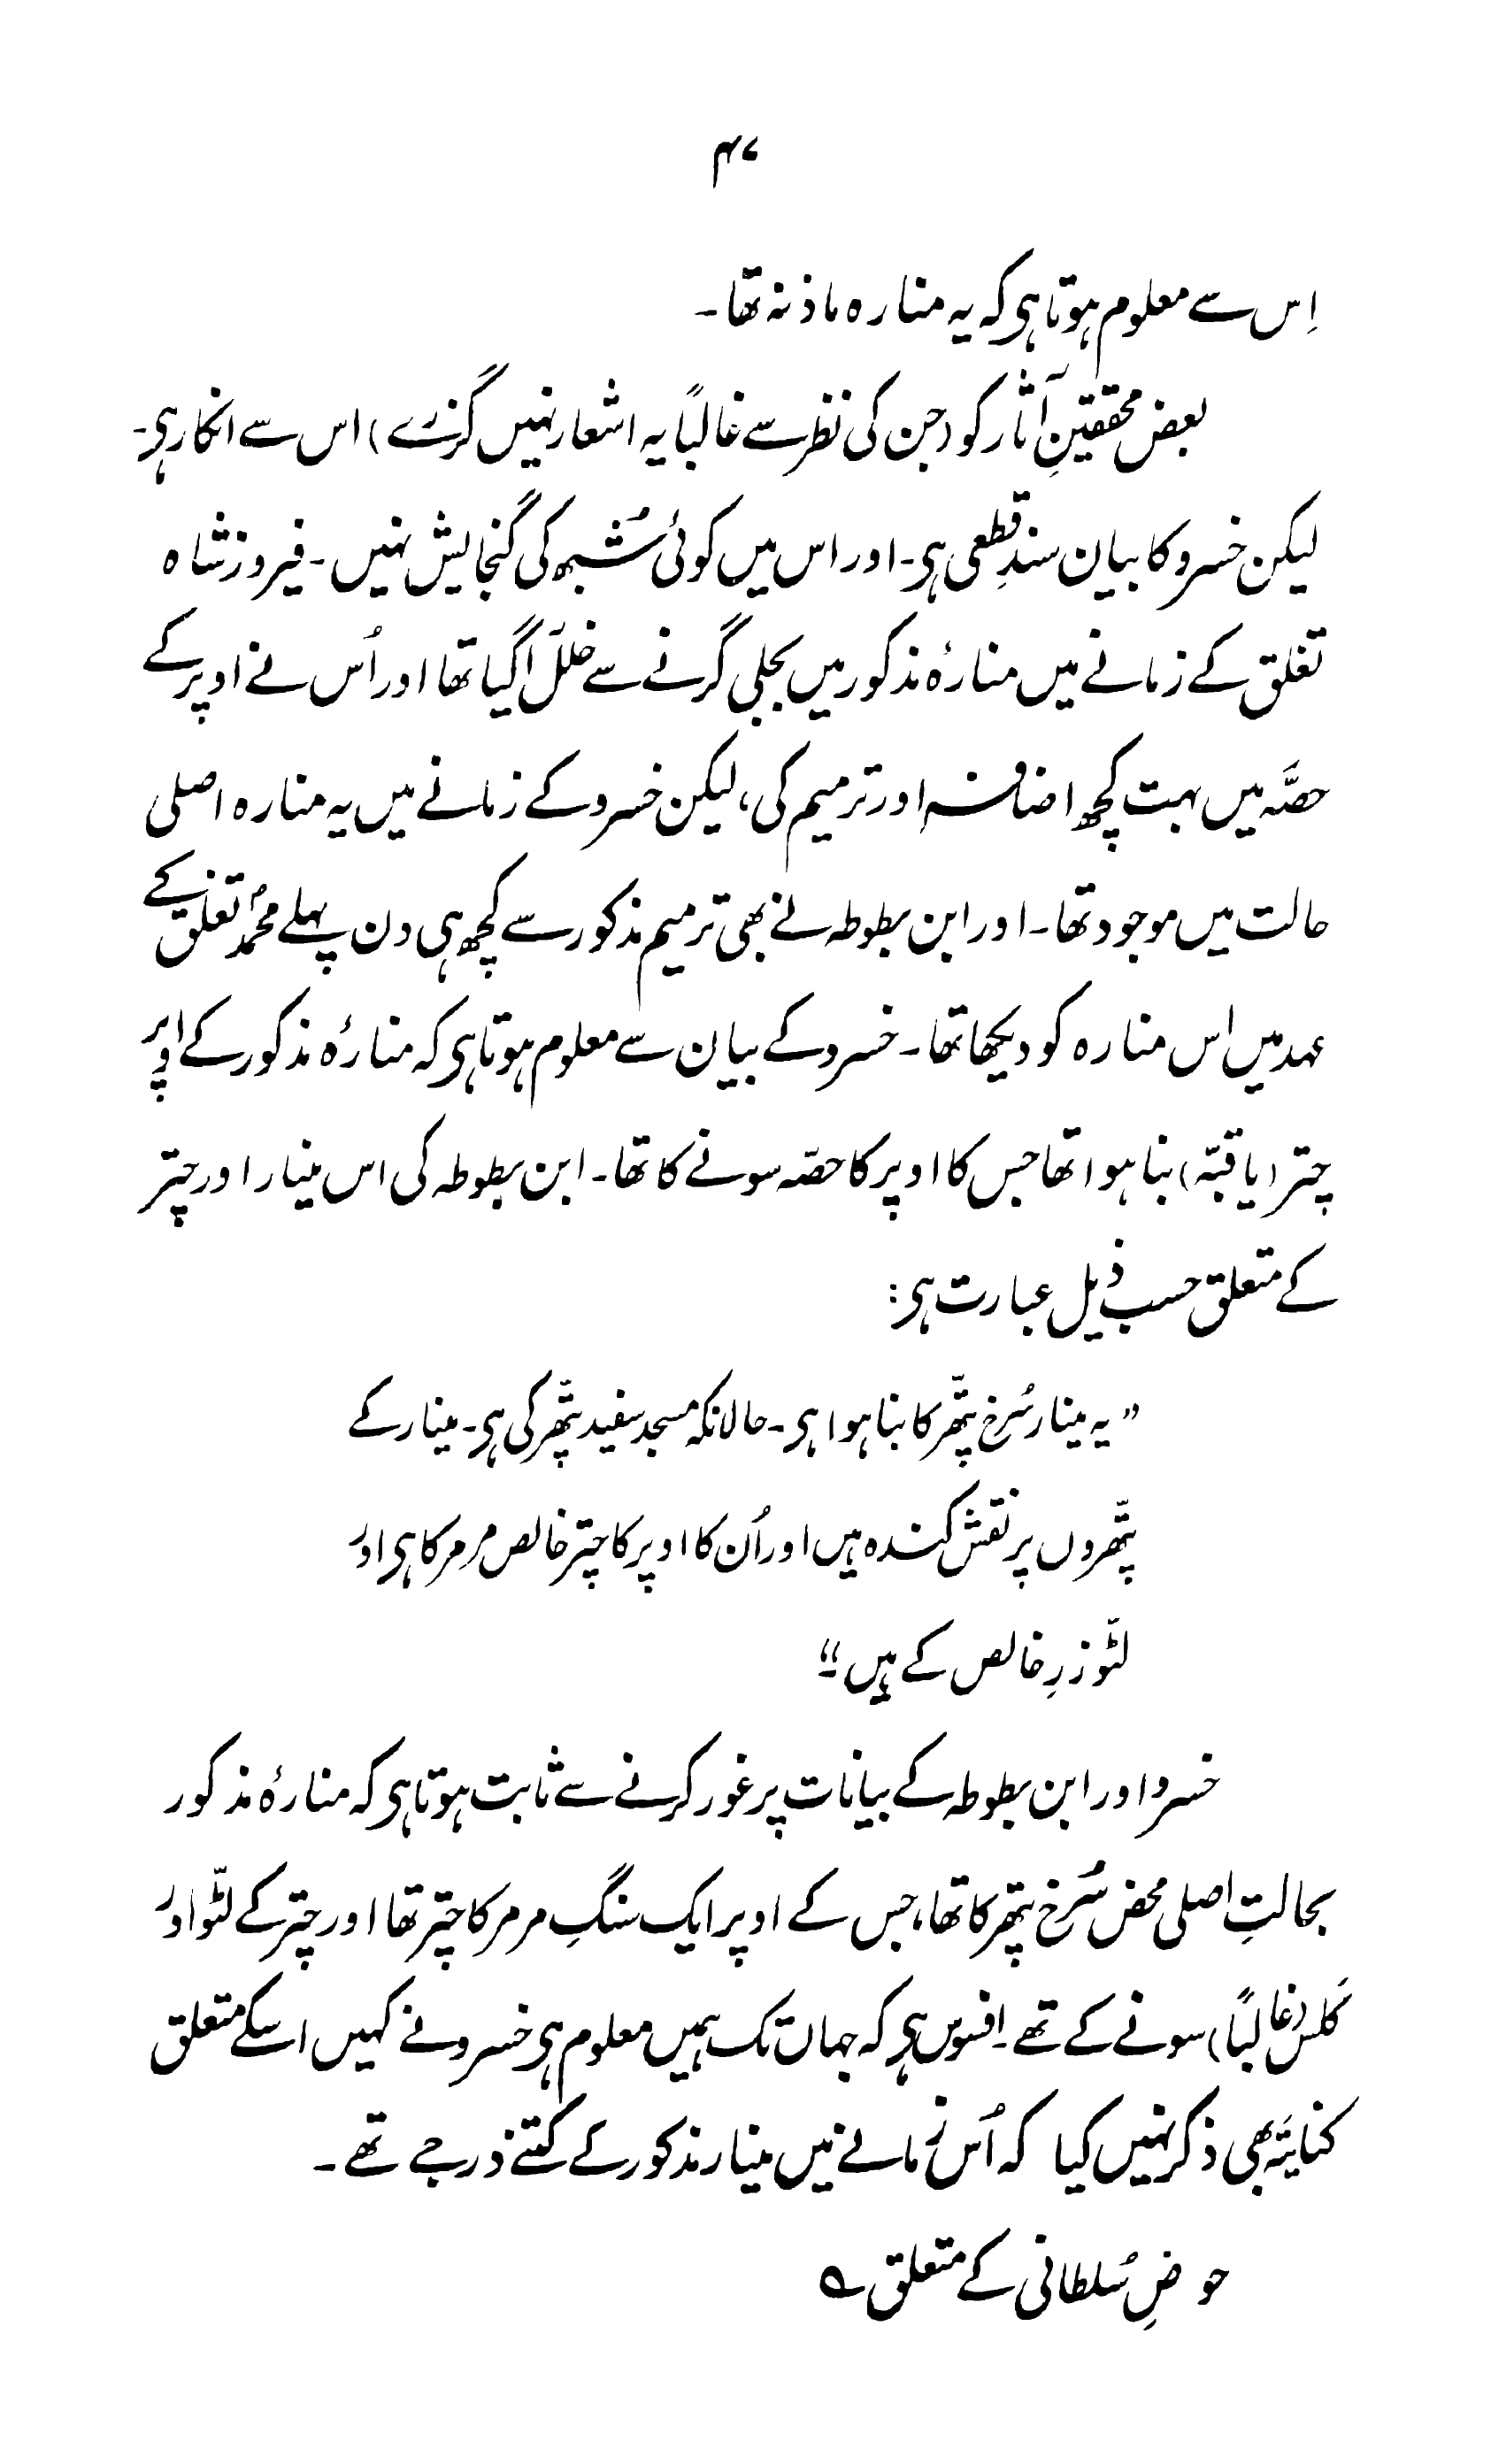 ۴۷
اِس سے معلوم ہوتا ہی کہ یہ منارہ ماذنہ تھا۔
بعض محققینِ آثار کو (جن کی نظر سے غالباً یہ اشعار نہیں گزرے) اس سے انکار ہی۔
لیکن خسرو کا بیان سندِ قطعی ہی۔ اور اس میں کوئی شُبہ کی گنجایش نہیں۔ فیروز شاہ
تغلق کے زمانے میں منارۂ مذکور میں بجلی گرنے سے خلل آگیا تھا اور اُس نے اوپر کے
حصّہ میں بہت کچھ اضافہ اور ترمیم کی، لیکن خسرو کے زمانے میں یہ منارہ اصلی
حالت میں موجود تھا۔ اور ابن بطوطہ نے بھی ترمیم مذکور سے کچھ ہی دن پہلے محمدؐ تغلق کے
عہد میں اس منارہ کو دیکھا تھا۔ خسرو کے بیان سے معلوم ہوتا ہی کہ منارۂ مذکور کے اوپر
چتر (یا قبّہ) بنا ہوا تھا جس کا اوپر کا حصّہ سونے کا تھا۔ ابن بطوطہ کی اس مینار اور چتر
کے متعلق حسب ذیل عبارت ہی:
”یہ مینار سُرخ پتّھر کا بنا ہوا ہی۔ حالانکہ مسجد سفید پتّھر کی ہی۔ مینار کے
پتّھروں پر نقش کندہ ہیں اور اُن کا اوپر کا چتر خالص مرمر کا ہی اور
لٹّو زرِ خالص کے ہیں۔“
خسرو اور ابن بطوطہ کے بیانات پر غور کرنے سے ثابت ہوتا ہی کہ منارۂ مذکور
بحالتِ اصلی محض سُرخ پتھر کا تھا، جس کے اوپر ایک سنگِ مرمر کا چتر تھا اور چتر کے لٹّو اور
کَلَس (غالباً) سونے کے تھے۔ افسوس ہی کہ جہاں تک ہمیں معلوم ہی خسرو نے کہیں اسکے متعلق
کنایتہً بھی ذکر نہیں کیا کہ اُس زمانے میں مینار مذکور کے کتنے درجے تھے۔
حوضِ سُلطانی کے متعلق ؎